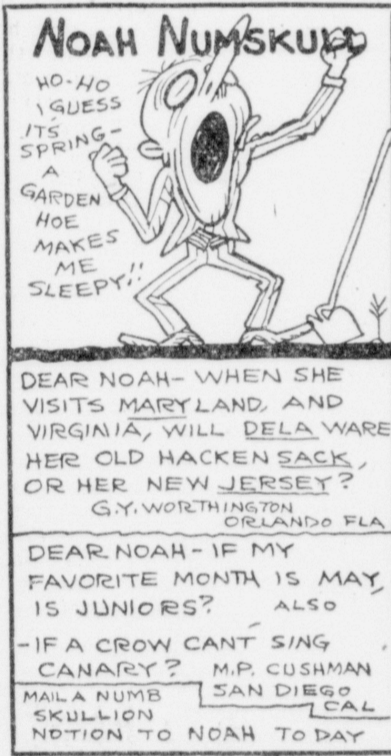 NOAH NUMSKULL
HO-HO
I GUESS
ITS
SPRING-
A
GARDEN
HOE
MAKES
ME
SLEEPY!!
DEAR NOAH- WHEN SHE
VISITS MARYLAND, AND
VIRGINIA, WILL DELA WARE
HER OLD HACKENSACK,
OR HER NEW JERSEY?
G.Y. WORTHINGTON
ORLANDO FLA
DEAR NOAH - IF MY
FAVORITE MONTH IS MAY,
IS JUNIORS? ALSO
-IF A CROW CANT SING
CANARY? M.P. CUSHMAN
SAN DIEGO
CAL
MAIL A NUMB
SKULLION
NOTION TO NOAH TO DAY